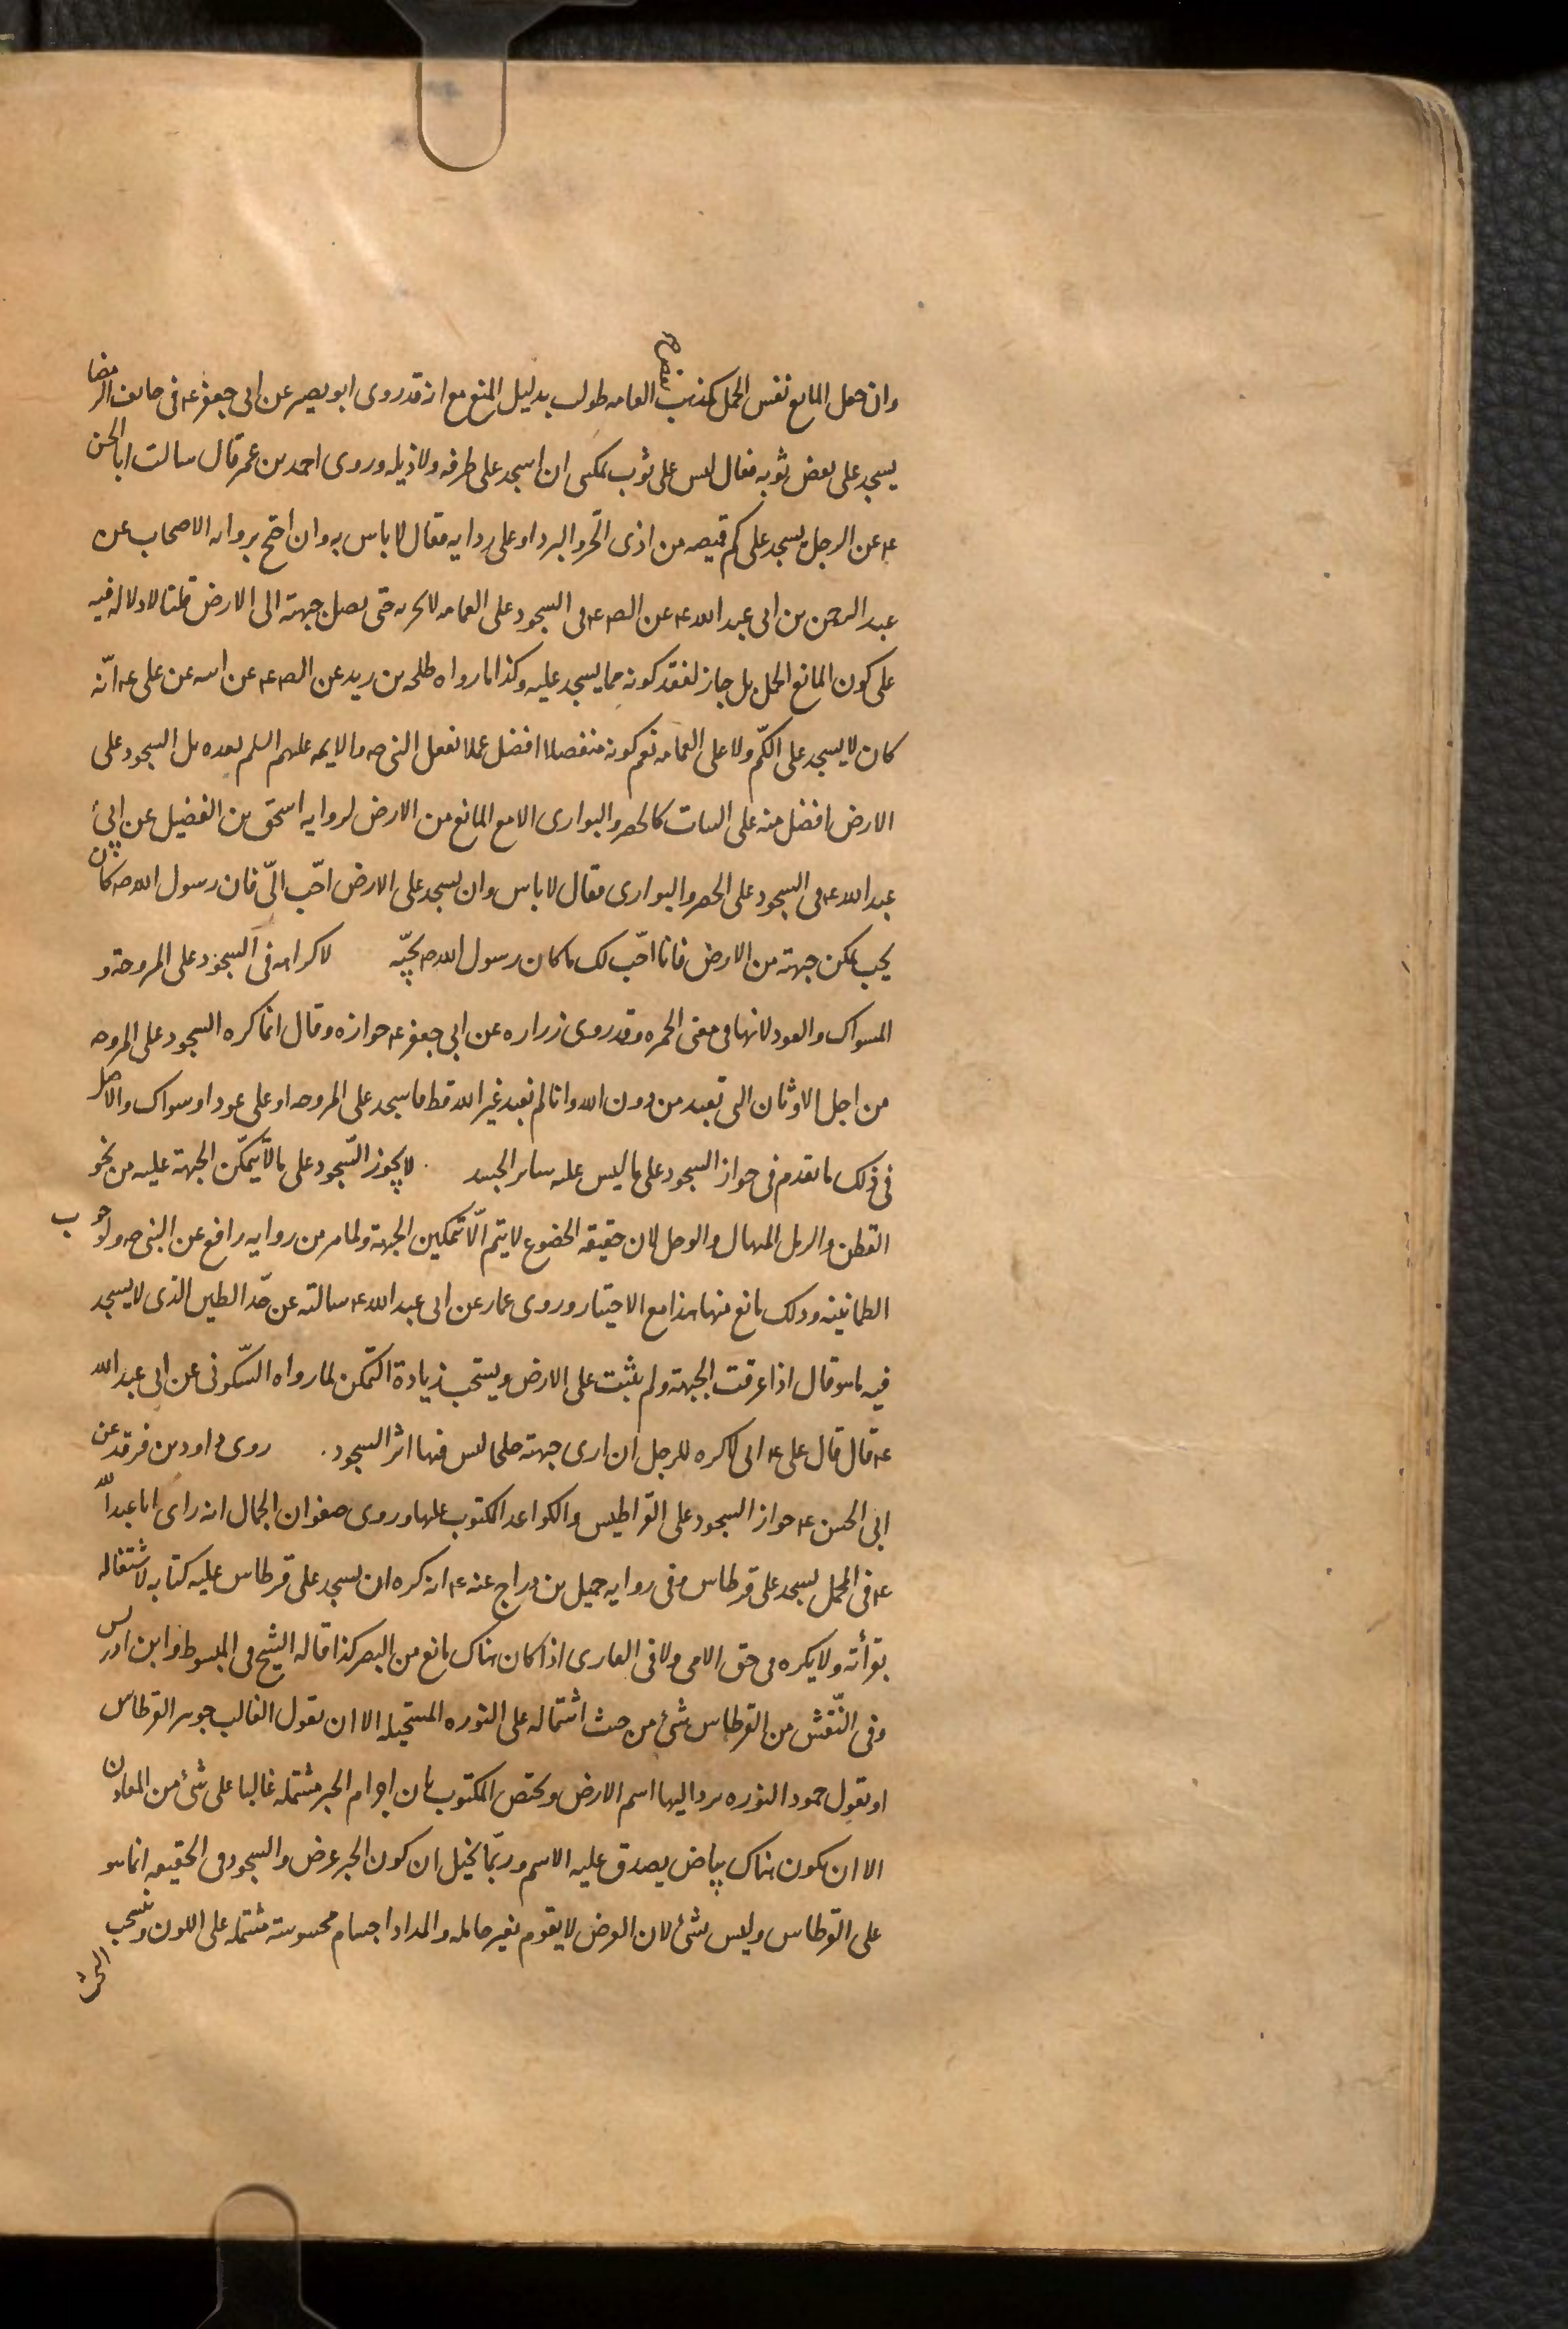 وان جعل المانع نفس الحمل كمذهب بعض العامه طولب بدليل المنع مع انه قد روى ابو بصير عن ابى جعفر ع فى خائف الرمضا
يسجد على بعض ثوبه فقال ليس على ثوب يمكننى ان اسجد على طرفه ولا ذيله وروى احمد بن عمر قال سالت ابا الحسن
ع عن الرجل يسجد على كم قميصه من اذى الحر والبرد او على ردايه فقال لا باس به وان احتج بروايه الاصحاب عن
عبد الرحمن بن ابى عبد الله ع عن الص ع فى السجود على العمامه لا يجزيه حتى يصل جبهته الى الارض قلنا لا دلاله فيه
على كون المانع الحمل بل جاز لفقد كونه مما يسجد عليه وكذا ما رواه طلحه بن زيد عن الص ع عن ابيه عن على ع انّه
كان لا يسجد على الكمّ ولا على العمامه نعم كونه منفصلا افضل عملا بفعل النبى ص والايمه عليهم السلم بعده بل السجود على
الارض افضل منه على النبات كالحصر والبوارى الا مع المانع من الارض لروايه اسحق بن الفضيل عن ابى
عبد الله ع فى السجود على الحصر والبوارى فقال لا باس وان يسجد على الارض احبّ الىّ فان رسول الله ص كان
يحب يمكن جبهته من الارض فانا احبّ لك ما كان رسول الله ص يحبّه لا كراهه فى السجود على المروحة و
المسواك والعود لانها فى معنى الخمره وقد روى زراره عن ابى جعفر ع جوازه وقال انما كره السجود على المروحه
من اجل الاوثان التى تعبد من دون الله وانا لم نعبد غير الله قط فاسجد على المروحه او على عود او سواك والاصل
فى ذلك ما تقدم فى جواز السجود على ما ليس عليه ساير الجسد لا يجوز السّجود على ما لا يتمكّن الجبهة عليه من نحو
القطن والرمل المنهال والوحل لان حقيقه الخضوع لا يتم الّا بتمكين الجبهة ولما مر من روايه رافع عن النبى ص ولوجوب
الطمانينه وذلك مانع منها هذا مع الاختيار وروى عمار عن ابى عبد الله ع سالته عن حدّ الطين الذى لا يسجد
فيه ما هو قال اذا غرقت الجبهة ولم يثبت على الارض ويستحب زيادة التمكن لما رواه السّكونى عن ابى عبد الله
ع قال قال على ع انى لاكره للرجل ان ارى جبهته جلحا ليس فيها اثر السجود. روى داود بن فرقد عن
ابى الحسن ع جواز السجود على القراطيس والكواغد المكتوب عليها وروى صفوان الجمال انه راى ابا عبد اللّه
ع فى المحمل يسجد على قرطاس وفى روايه جميل بن دراج عنه ع انه كره ان يسجد على قرطاس عليه كتابه لاشتغاله
بقرأته ولا يكره فى حق الامى ولا فى القارى اذا كان هناك مانع من البصر كذا قاله الشيخ فى المبسوط وابن ادريس
وفى النّفس من القرطاس شئ من حيث اشتماله على النوره المستحيله الا ان نقول الغالب جوهر القرطاس
او نقول جمود النوره يرد اليها اسم الارض ويختص المكتوب بان اجرام الحبر مشتمله غالبا على شئ من المعادن
الا ان يكون هناك بياض يصدق عليه الاسم وربّما يخيل ان كون الحبر عرض والسجود فى الحقيقه انما هو
على القرطاس وليس بشئ لان العرض لا يقوم بغير حامله والمداد اجسام محسوسة مشتمله على اللون وينسحب
البحث